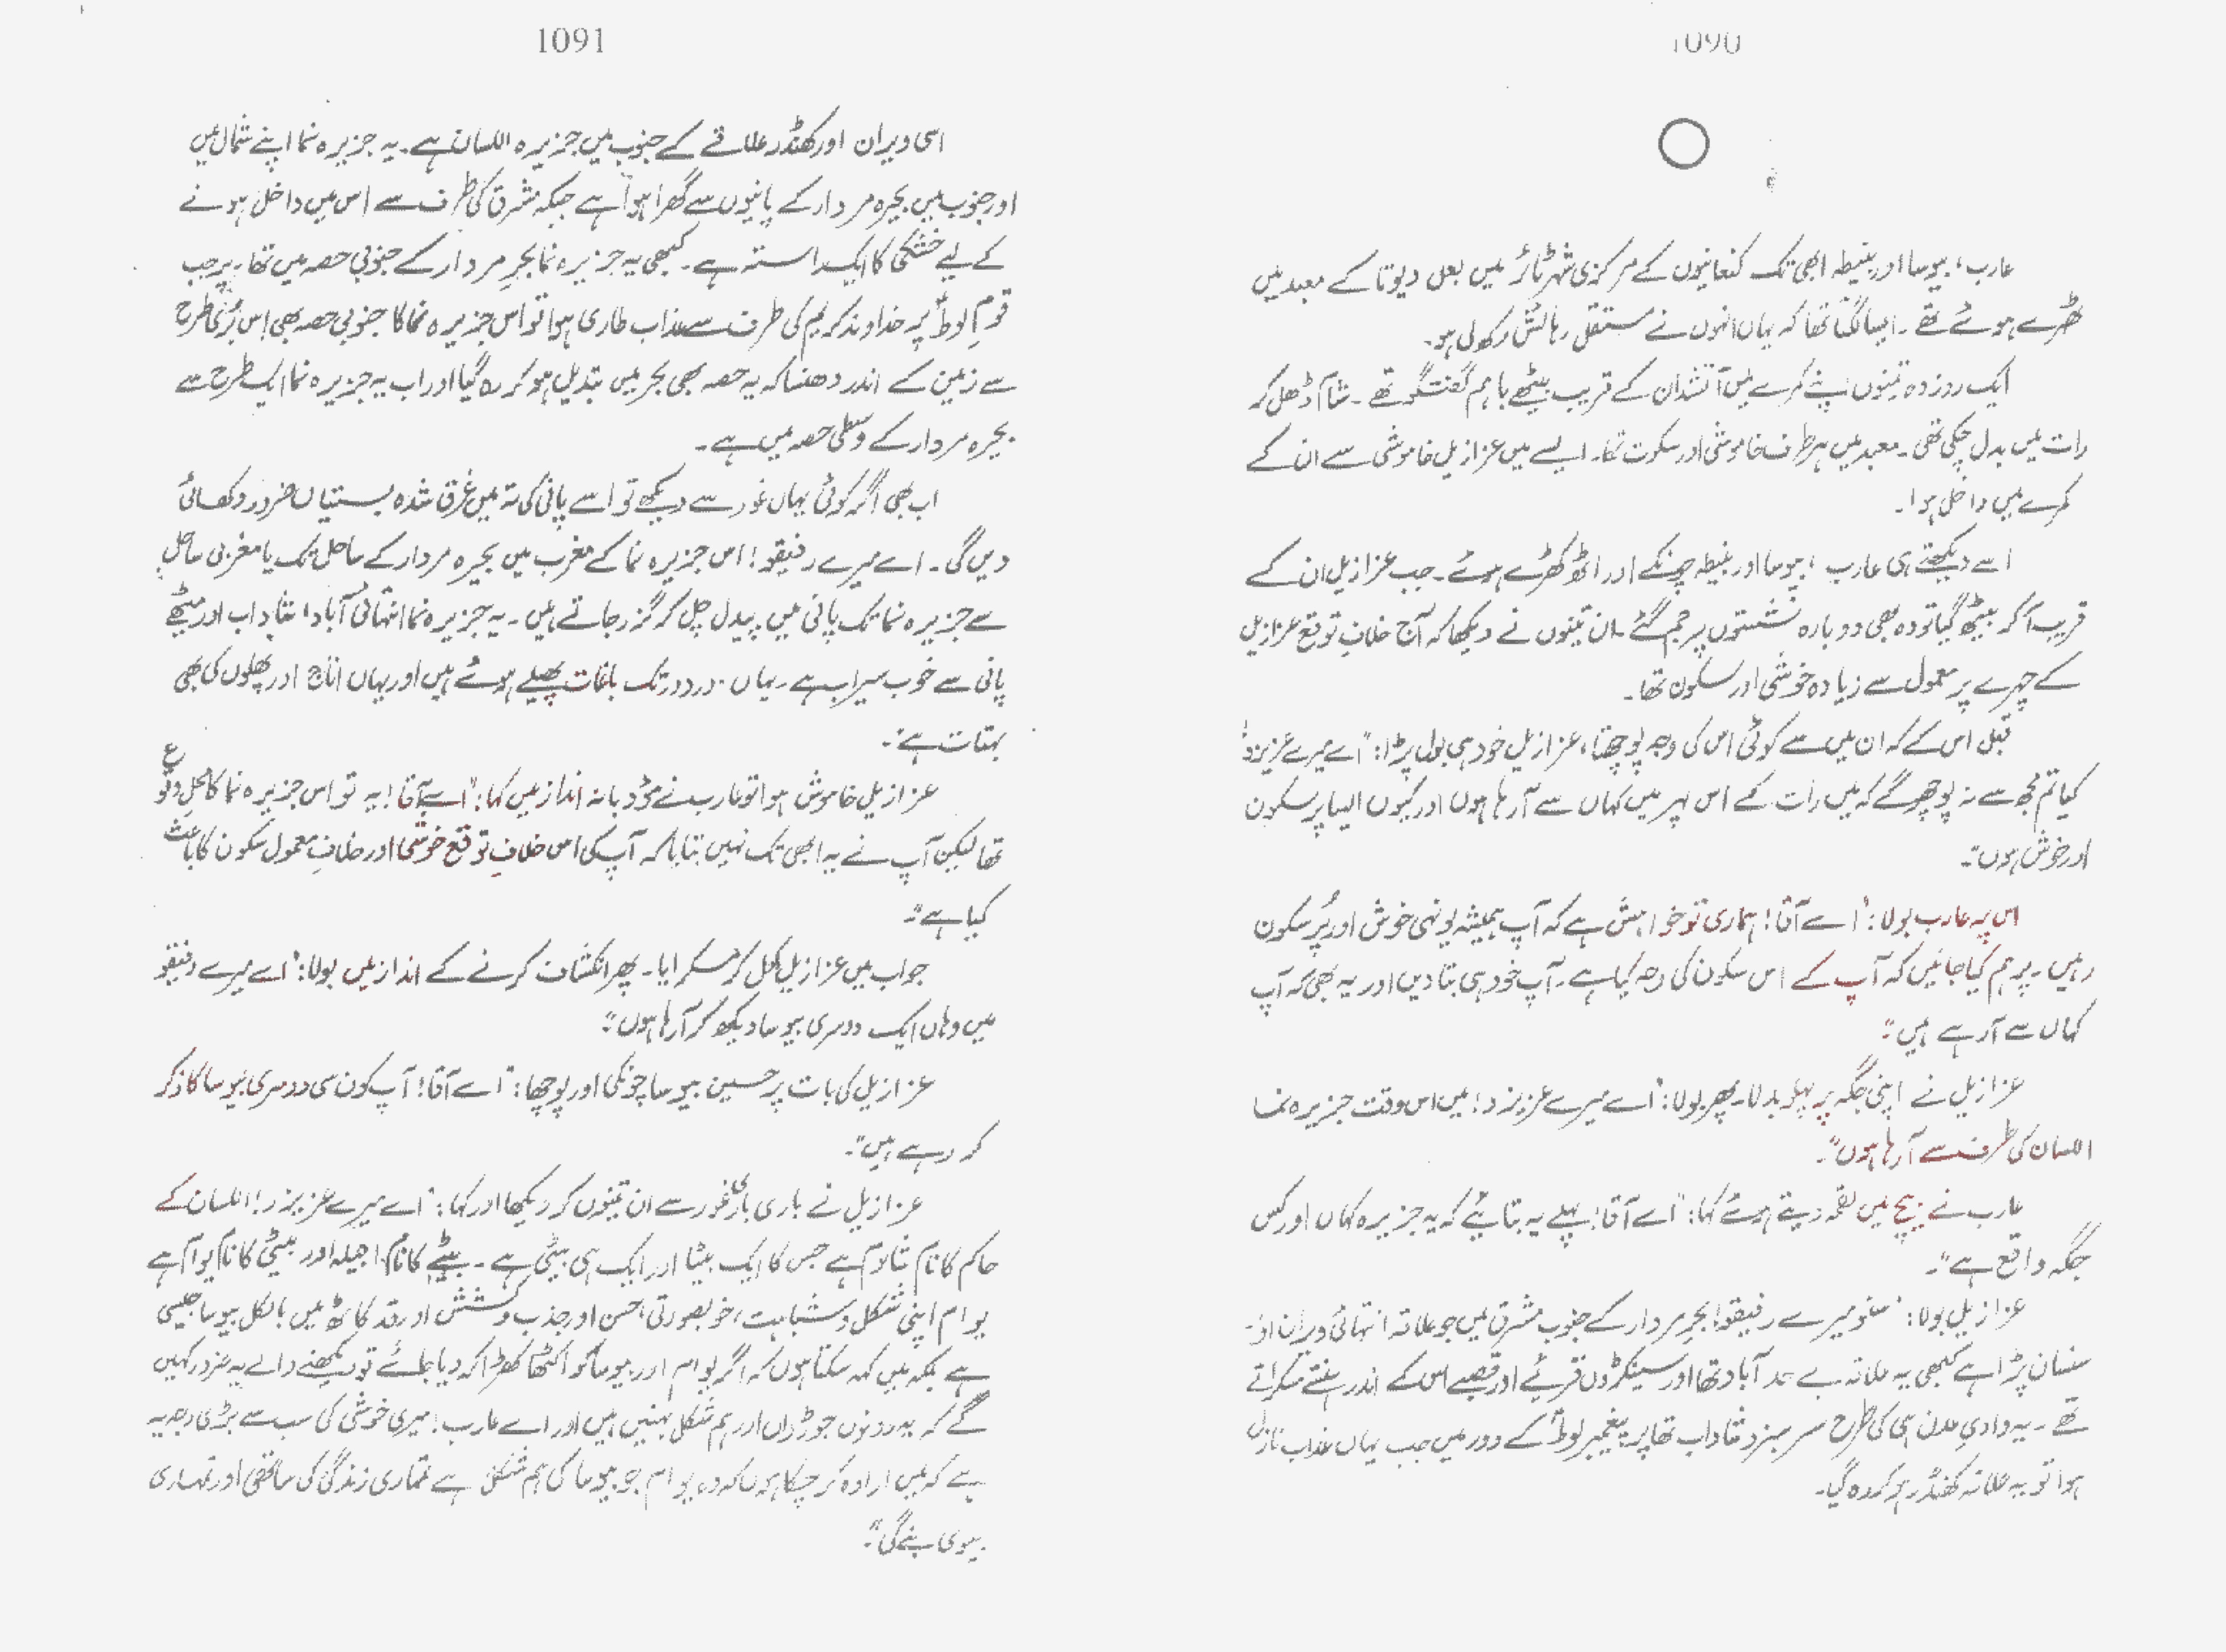 1090
عارب، بیوسا اور بنیطہ ابھی تک کنعانیوں کے مرکزی شہر ٹائر میں بعل دیوتا کے معبد میں
ٹھہرے ہوئے تھے ۔ ایسا لگتا تھا کہ یہاں انہوں نے مستقل رہائش رکھ لی ہو۔
ایک روز وہ تینوں اپنے کمرے میں آتشدان کے قریب بیٹھے باہم گفتگو تھے ۔ شام ڈھل کر
رات میں بدل چکی تھی ۔ معبد میں ہر طرف خاموشی اور سکوت تھا۔ ایسے میں عزازیل خاموشی سے ان کے
کمرے میں داخل ہوا۔
اسے دیکھتے ہی عارب ، بیوسا اور بنیطہ چونکے اور اٹھ کھڑے ہوئے ۔ جب عزازیل ان کے
قریب آ کر بیٹھ گیا تو وہ بھی دوبارہ نشستوں پر جم گئے ۔ ان تینوں نے دیکھا کہ آج خلافِ توقع عزازیل
کے چہرے پر معمول سے زیادہ خوشی اور سکون تھا۔
قبل اس کے کہ ان میں سے کوئی اس کی وجہ پوچھتا، عزازیل خود ہی بول پڑا: "اے میرے عزیزو!
کیا تم مجھ سے نہ پوچھو گے کہ میں رات کے اس پہر میں کہاں سے آ رہا ہوں اور کیوں ایسا پرسکون
اور خوش ہوں"۔
اس پہ عارب بولا: "اے آقا! ہماری تو خواہش ہے کہ آپ ہمیشہ یونہی خوش اور پُرسکون
رہیں ۔ پر ہم کیا جانیں کہ آپ کے اس سکون کی وجہ کیا ہے ۔ آپ خود ہی بتا دیں اور یہ بھی کہ آپ
کہاں سے آ رہے ہیں"۔
عزازیل نے اپنی جگہ پر پہلو بدلا۔ پھر بولا: "اے میرے عزیزو! میں اس وقت جزیرہ نما
اللسان کی طرف سے آ رہا ہوں"۔
عارب نے بیچ میں لقمہ دیتے ہوئے کہا: "اے آقا! پہلے یہ بتائیے کہ یہ جزیرہ کہاں اور کس
جگہ واقع ہے"۔
عزازیل بولا: "سنو میرے رفیقو! بحرِ مردار کے جنوب مشرق میں جو علاقہ انتہائی ویران اور
سنسان پڑا ہے کبھی یہ علاقہ بے حد آباد تھا اور سینکڑوں قریئے اور قصبے اس کے اندر ہنستے مسکراتے
تھے ۔ یہ وادیِ عدن ہی کی طرح سرسبز و شاداب تھا پر پیغمبر لوطؑ کے دور میں جب یہاں عذاب نازل
ہوا تو یہ علاقہ کھنڈر ہو کر رہ گیا۔
1091
اسی ویران اور کھنڈر علاقے کے جنوب میں جزیرہ اللسان ہے۔ یہ جزیرہ نما اپنے شمال میں
اور جنوب میں بحیرہ مردار کے پانیوں سے گھرا ہوا ہے جبکہ مشرق کی طرف سے اس میں داخل ہونے
کے لیے خشکی کا ایک راستہ ہے ۔ کبھی یہ جزیرہ نما بحرِ مردار کے جنوبی حصہ میں تھا۔ پر جب
قومِ لوطؑ پر خداوند کریم کی طرف سے عذاب طاری ہوا تو اس جزیرہ نما کا جنوبی حصہ بھی اس بُری طرح
سے زمین کے اندر دھنسا کہ یہ حصہ بھی بحر میں تبدیل ہو کر رہ گیا اور اب یہ جزیرہ نما ایک طرح سے
بحیرہ مردار کے وسطی حصہ میں ہے ۔
اب بھی اگر کوئی یہاں غور سے دیکھے تو اسے پانی کی تہ میں غرق شدہ بستیاں ضرور دکھائی
دیں گی ۔ اے میرے رفیقو! اس جزیرہ نما کے مغرب میں بحیرہ مردار کے ساحل تک یا مغربی ساحل
سے جزیرہ نما تک پانی میں پیدل چل کر گزر جاتے ہیں ۔ یہ جزیرہ نما انتہائی آباد، شاداب اور میٹھے
پانی سے خوب سیراب ہے ۔ یہاں دور دور تک باغات پھیلے ہوئے ہیں اور یہاں اناج اور پھلوں کی بھی
بہتات ہے"۔
عزازیل خاموش ہوا تو عارب نے مؤدبانہ انداز میں کہا: "اے آقا! یہ تو اس جزیرہ نما کا محلِ وقوع
تھا لیکن آپ نے یہ ابھی تک نہیں بتایا کہ آپ کی اس خلافِ توقع خوشی اور خلافِ معمول سکون کا باعث
کیا ہے"۔
جواب میں عزازیل کھل کر مسکرایا۔ پھر انکشاف کرنے کے انداز میں بولا: "اے میرے رفیقو
میں وہاں ایک دوسری بیوسا دیکھ کر آ رہا ہوں"۔
عزازیل کی بات پر حسین بیوسا چونکی اور پوچھا: "اے آقا! آپ کون سی دوسری بیوسا کا ذکر
کر رہے ہیں"۔
عزازیل نے باری باری غور سے ان تینوں کو دیکھا اور کہا: "اے میرے عزیزو! اللسان کے
حاکم کا نام بتاوم ہے جس کا ایک بیٹا اور ایک ہی بیٹی ہے ۔ بیٹے کا نام اجیلہ اور بیٹی کا نام یوام ہے
یوام اپنی شکل و شباہت، خوبصورتی، حسن اور جذب و کشش اور قد کاٹھ میں بالکل بیوسا جیسی
ہے بلکہ میں کہہ سکتا ہوں کہ اگر یوام اور بیوسا کو اکٹھا کھڑا کر دیا جائے تو دیکھنے والے یہ ضرور کہیں
گے کہ یہ دونوں جوڑواں اور ہم شکل بہنیں ہیں اور اے عارب! میری خوشی کی سب سے بڑی وجہ یہ
ہے کہ میں ارادہ کر چکا ہوں کہ وہ یوام جو بیوسا کی ہم شکل ہے تمہاری زندگی کی ساتھی اور تمہاری
بیوی بنے گی"۔